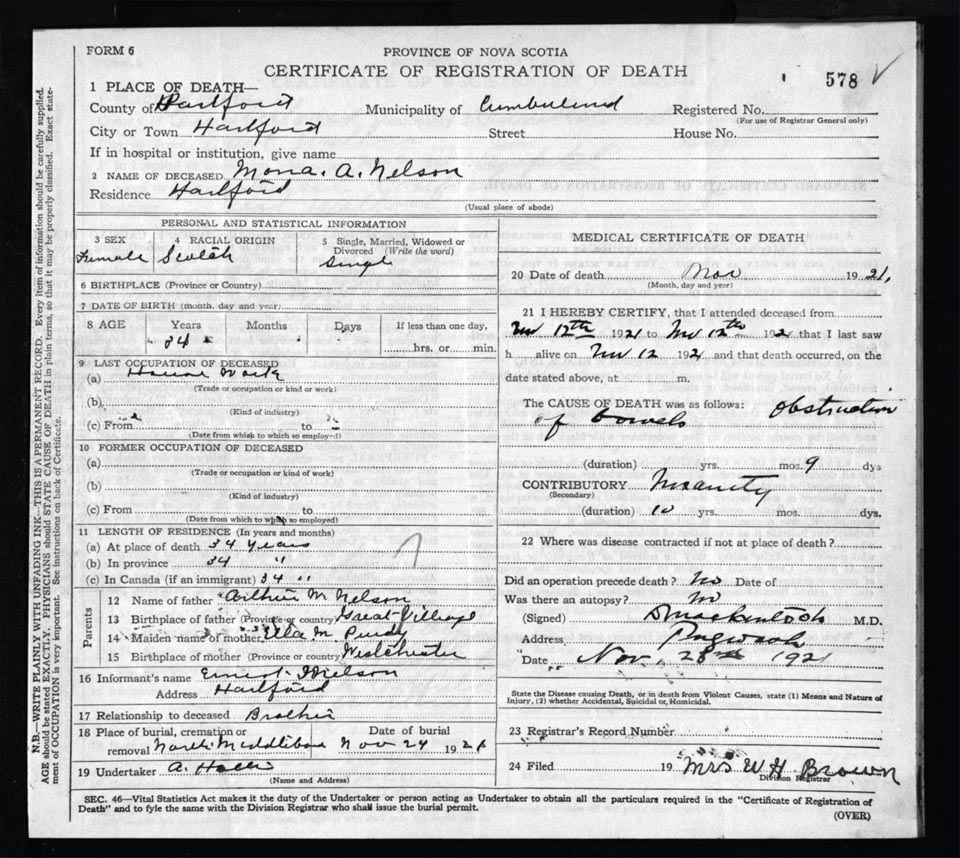 FORM 6
PROVINCE OF NOVA SCOTIA
CERTIFICATE OF REGISTRATION OF DEATH
578
1 PLACE OF DEATH—
County of Hartford Municipality of Cumberland Registered No.
(For use of Registrar General only)
City or Town Hartford Street House No.
If in hospital or institution, give name
2 NAME OF DECEASED Mona. A. Nelson
Residence Hartford
(Usual place of abode)
PERSONAL AND STATISTICAL INFORMATION
3 SEX 4 RACIAL ORIGIN 5 Single, Married, Widowed or Divorced (Write the word)
Female Scotch Single
6 BIRTHPLACE (Province or Country)
7 DATE OF BIRTH (month, day and year)
8 AGE Years Months Days If less than one day,
34 hrs. or min.
9 LAST OCCUPATION OF DECEASED
(a) House Work
(Trade or occupation or kind or work)
(b)
(Kind of industry)
(c) From to
(Date from which to which so employed)
10 FORMER OCCUPATION OF DECEASED
(a)
(Trade or occupation or kind of work)
(b)
(Kind of industry)
(c) From to
(Date from which to which so employed)
11 LENGTH OF RESIDENCE (In years and months)
(a) At place of death 34 years
(b) In province 34 "
(c) In Canada (if an immigrant) 34 "
Parents
12 Name of father Arthur M Nelson
13 Birthplace of father (Province or country) Great Village
14 Maiden name of mother Ella M Purdy
15 Birthplace of mother (Province or country) Westchester
16 Informant's name Ernest Nelson
Address Hartford
17 Relationship to deceased Brother
18 Place of burial, cremation or Date of burial
removal North Middleboro Nov 24 1921
19 Undertaker A.
(Name and Address)
MEDICAL CERTIFICATE OF DEATH
20 Date of death Nov 1921,
(Month, day and year)
21 I HEREBY CERTIFY, that I attended deceased from
Nov 12th 1921 to Nov 12th 1921 that I last saw
h alive on Nov 12 1921 and that death occurred, on the
date stated above, at m.
The CAUSE OF DEATH was as follows: Obstruction
of bowels
(duration) yrs. mos. 9 dys
CONTRIBUTORY Insanity
(Secondary)
(duration) 10 yrs. mos. dys.
22 Where was disease contracted if not at place of death?
Did an operation precede death? No Date of
Was there an autopsy? No
(Signed) D Mackintosh M.D.
Address Pugwash
Date Nov. 28th 1921
State the Disease causing Death, or in death from Violent Causes, state (1) Means and Nature of
Injury, (2) whether Accidental, Suicidal or, Homicidal.
23 Registrar's Record Number
24 Filed 19 Mrs W H Brown
Division Registrar
SEC. 46—Vital Statistics Act makes it the duty of the Undertaker or person acting as Undertaker to obtain all the particulars required in the "Certificate of Registration of
Death" and to fyle the same with the Division Registrar who shall issue the burial permit.
(OVER)
N.B.—WRITE PLAINLY WITH UNFADING INK—THIS IS A PERMANENT RECORD. Every item of information should be carefully supplied.
AGE should be stated EXACTLY. PHYSICIANS should STATE CAUSE OF DEATH in plain terms, so that it may be properly classified. Exact state-
ment of OCCUPATION is very important. See instructions on back of Certificate.